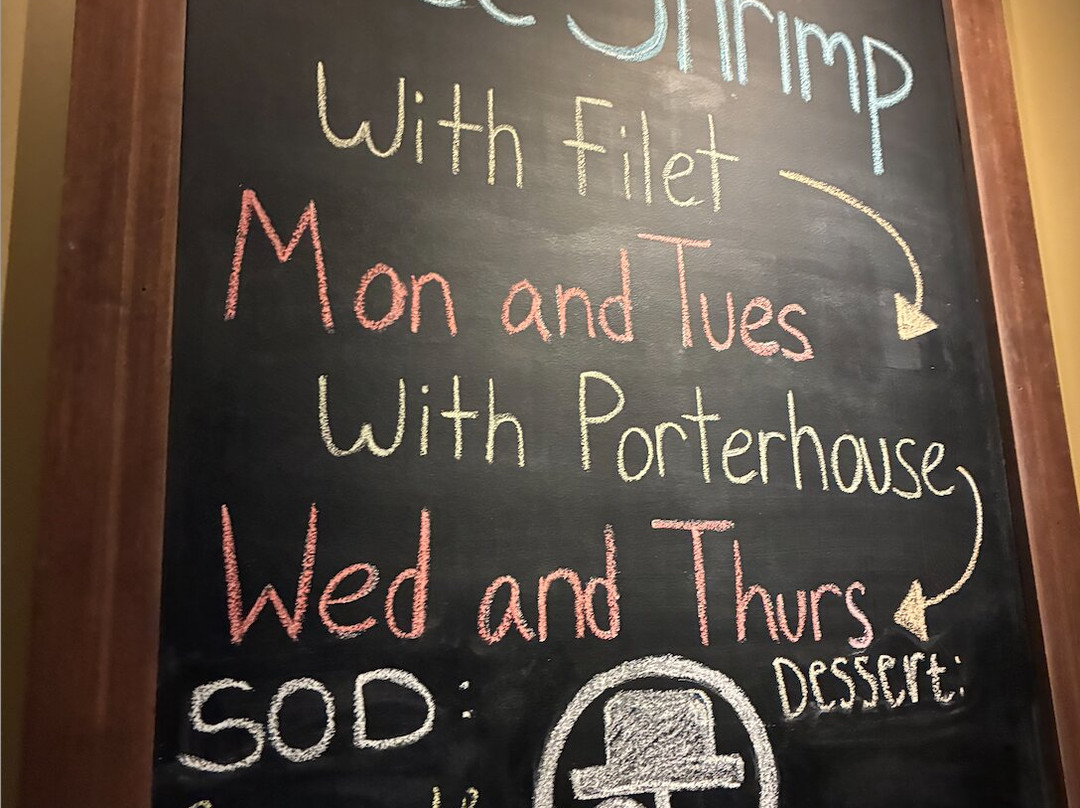 Shrimp
With Filet
Mon and Tues
With Porterhouse
Wed and Thurs
SOD:
Dessert: